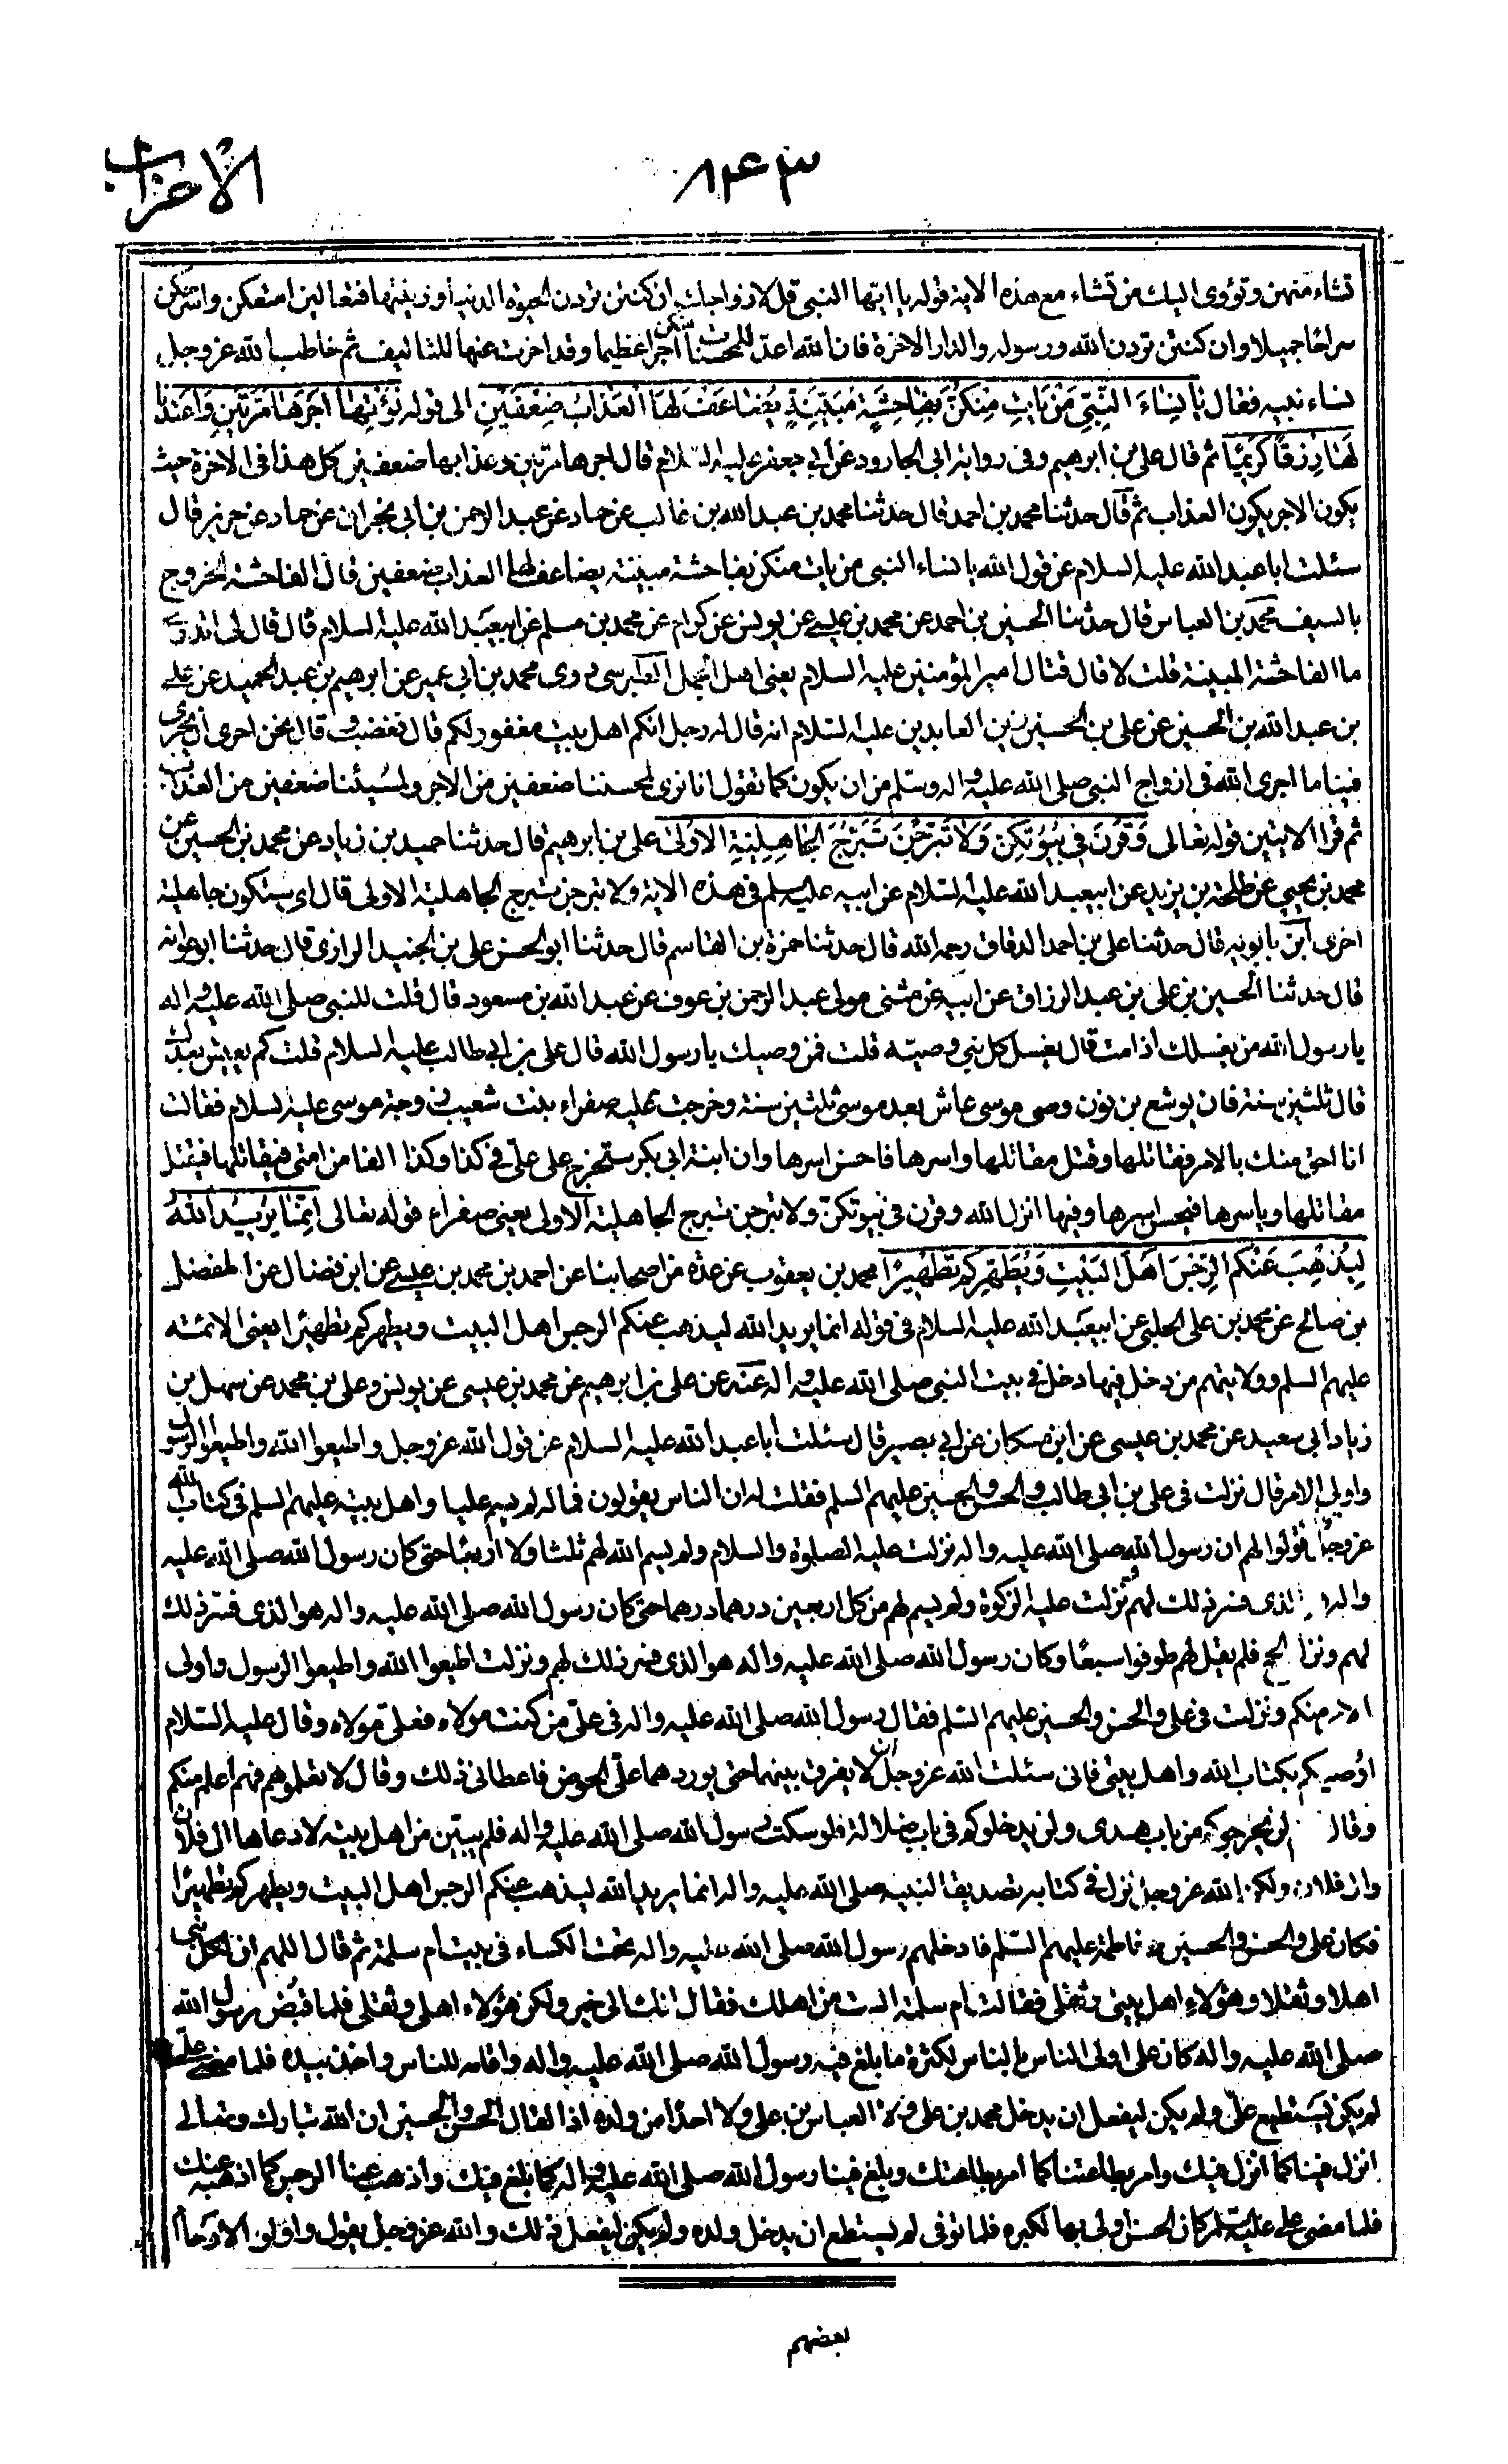 الأحزاب
٨٤٣
تشاء منهن وتؤوى اليك من تشاء مع هذه الاية قوله يا ايها النبى قل لازواجك ان كنتن تردن الحيوة الدنيا وزينتها فتعالين امتعكن واسرحكن
سراحا جميلا وان كنتن تردن الله ورسوله والدار الاخرة فان الله اعد للمحسنات منكن اجرا عظيما وقد اخرت عنها للتاليف ثم خاطب الله عز وجل
نساء نبيه فقال يا نِسَاءَ النَّبِيِّ مَنْ يَاْتِ مِنْكُنَّ بِفَاحِشَةٍ مُبَيِّنَةٍ يُضَاعَفْ لَهَا الْعَذَابُ ضِعْفَيْنِ الى قوله نُؤْتِهَا اَجْرَهَا مَرَّتَيْنِ وَاَعْتَدْنَا
لَهَا رِزْقًا كَرِيمًا ثم قال على بن ابرهيم وفى رواية ابى الجارود عن ابى جعفر عليه السلام قال اجرها مرتين وعذابها ضعفين كل هذا فى الاخرة حيث
يكون الاجر يكون العذاب ثم قال حدثنا محمد بن احمد قال حدثنا محمد بن عبد الله بن غالب عن حماد عن عبد الرحمن بن ابى نجران عن حماد عن حريز قال
سئلت ابا عبد الله عليه السلام عن قول الله يا نساء النبى من يات منكن بفاحشة مبينة يضاعف لها العذاب ضعفين قال الفاحشة الخروج
بالسيف محمد بن العباس قال حدثنا الحسين بن احمد عن محمد بن عيسى عن يونس عن كرام عن محمد بن مسلم عن ابيعبد الله عليه السلام قال قال لى اتدرى
ما الفاحشة المبينة قلت لا قال قتال امير المؤمنين عليه السلام يعنى اهل الجمل الطبرسى روى محمد بن ابى عمير عن ابرهيم بن عبد الحميد عن على
بن عبد الله بن الحسين عن على بن الحسين زين العابدين عليه السلام انه قال له رجل انكم اهل بيت مغفور لكم قال فغضب وقال نحن احرى أن يجرى
فينا ما اجرى الله فى ازواج النبى صلى الله عليه واله وسلم من ان يكون كما تقول انا نرى لمحسننا ضعفين من الاجر ولمسيئنا ضعفين من العذاب
ثم قرا الايتين قوله تعالى وَقَرْنَ فِي بُيُوتِكُنَّ وَلَا تَبَرَّجْنَ تَبَرُّجَ الْجَاهِلِيَّةِ الْاُولَىٰ على بن ابرهيم قال حدثنا حميد بن زياد عن محمد بن الحسين عن
محمد بن يحيى عن طلحة بن يزيد عن ابيعبد الله عليه السلام عن ابيه عليه سلم فى هذه الاية ولا تبرجن تبرج الجاهلية الاولى قال اى ستكون جاهلية
اخرى ابن بابويه قال حدثنا على بن احمد الدقاق رحمه الله قال حدثنا حمزة بن القاسم قال حدثنا ابو الحسن على بن الجنيد الرازى قال حدثنا ابو عوانه
قال حدثنا الحسين بن على بن عبد الرزاق عن ابيه عن مثنى مولى عبد الرحمن بن عوف عن عبد الله بن مسعود قال قلت للنبى صلى الله عليه واله
يا رسول الله من يغسلك اذا مت قال يغسل كل نبى وصيه قلت فمن وصيك يا رسول الله قال على بن ابى طالب عليه السلام قلت كم يعيش بعدك
قال ثلثين سنة فان يوشع بن نون وصى موسى عاش بعد موسى ثلثين سنة وخرجت عليه صفراء بنت شعيب زوجة موسى عليه السلام فقالت
انا احق منك بالامر فقاتلها وقتل مقاتلها واسرها فاحسن اسرها وان ابنة ابى بكر ستخرج على على فى كذا وكذا الفا من امتى فيقاتلها فيقتل
مقاتلها وياسرها فيحسن اسرها وفيها انزل الله وقرن فى بيوتكن ولا تبرجن تبرج الجاهلية الاولى يعنى صفراء قوله تعالى اِنَّمَا يُرِيدُ اللهُ
لِيُذْهِبَ عَنْكُمُ الرِّجْسَ اَهْلَ الْبَيْتِ وَيُطَهِّرَكُمْ تَطْهِيرًا محمد بن يعقوب عن عدة من اصحابنا عن احمد بن محمد بن عيسى عن ابن فضال عن المفضل
بن صالح عن محمد بن على الحلبى عن ابيعبد الله عليه السلام فى قوله انما يريد الله ليذهب عنكم الرجس اهل البيت ويطهركم تطهيرا يعنى الائمة
عليهم السلم وولايتهم من دخل فيها دخل فى بيت النبى صلى الله عليه واله عنه عن على بن ابرهيم عن محمد بن عيسى عن يونس وعلى بن محمد عن سهل بن
زياد أبى سعيد عن محمد بن عيسى عن ابن مسكان عن ابى بصير قال سئلت ابا عبد الله عليه السلام عن قول الله عز وجل واطيعوا الله واطيعوا الرسول
واولى الامر قال نزلت فى على بن ابى طالب والحسن والحسين عليهم السلم فقلت له ان الناس يقولون فما له لم يسم عليا واهل بيته عليهم السلم فى كتاب الله
عز وجل قولوا لهم ان رسول الله صلى الله عليه واله نزلت عليه الصلوة والسلام ولم يسم الله لهم ثلثا ولا اربعا حتى كان رسول الله صلى الله عليه
واله الذى فسر ذلك لهم ونزلت عليه الزكوة ولم يسم لهم من كل اربعين درهما درهما حتى كان رسول الله صلى الله عليه واله هو الذى فسر ذلك
لهم ونزل الحج فلم يقل لهم طوفوا سبعا وكان رسول الله صلى الله عليه واله هو الذى فسر ذلك لهم ونزلت اطيعوا الله واطيعوا الرسول واولى
الامر منكم ونزلت فى على والحسن والحسين عليهم السلم فقال رسول الله صلى الله عليه واله فى على من كنت مولاه فعلى مولاه وقال عليه السلام
اوصيكم بكتاب الله واهل بيتى فانى سئلت الله عز وجل ان لا يفرق بينهما حتى يوردهما على الحوض فاعطانى ذلك وقال لا تعلموهم فهم اعلم منكم
وقال لن يخرجوكم من باب هدى ولن يدخلوكم فى باب ضلالة فلو سكت رسول الله صلى الله عليه واله فلم يبين من اهل بيته لادعاها ال فلان
وال فلان ولكن الله عز وجل نزل فى كتابه تصديقا لنبيه صلى الله عليه واله انما يريد الله ليذهب عنكم الرجس اهل البيت ويطهركم تطهيرا
فكان على والحسن والحسين وفاطمة عليهم السلم فادخلهم رسول الله صلى الله عليه واله تحت الكساء فى بيت ام سلمة ثم قال اللهم ان لكل نبى
اهلا وثقلا وهؤلاء اهل بيتى وثقلى فقالت ام سلمة الست من اهلك فقال انك الى خير ولكن هؤلاء اهلى وثقلى فلما قبض رسول الله
صلى الله عليه واله كان على اولى الناس بالناس لكثرة ما بلغ فيه رسول الله صلى الله عليه واله واقامه للناس واخذ بيده فلما مضى على
لم يكن يستطيع على ولم يكن ليفعل ان يدخل محمد بن على ولا العباس بن على ولا احدا من ولده اذا لقال الحسن والحسين ان الله تبارك وتعالى
انزل فينا كما انزل فيك وامر بطاعتنا كما امر بطاعتك وبلغ فينا رسول الله صلى الله عليه واله كما بلغ فيك واذهب عنا الرجس كما اذهبه عنك
فلما مضى على عليه السلم كان الحسن اولى بها لكبره فلما توفى لم يستطع ان يدخل ولده ولم يكن ليفعل ذلك والله عز وجل يقول واولو الارحام
بعضهم